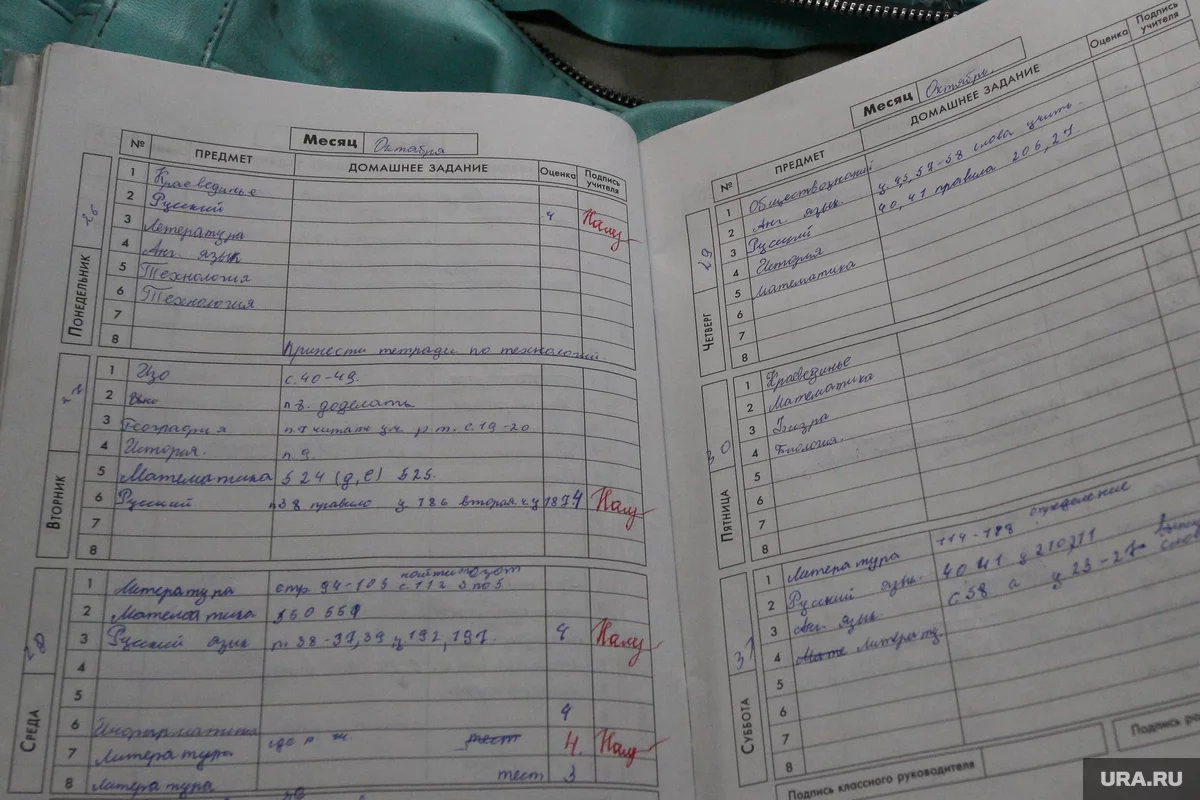 Месяц Октября
№ ПРЕДМЕТ ДОМАШНЕЕ ЗАДАНИЕ Оценка Подпись учителя
ПОНЕДЕЛЬНИК 26
1 Краевединье
2 Русский 4
3 Летература
4 Анг. язык
5 Технология
6 Технология
7
8 Принести тетради по технологий.
ВТОРНИК
1 Изо с. 40-49.
2 доделать
3 География р.т. с. 19-20
4 История. п. 9.
5 Математика 524 (д, е) 525.
6 Русский п38 правило у. 186 вторая 187. 4
7
8
СРЕДА
1 Литература стр 94-103 найти
2 Математика
3 Русский язык п. 38-37,39 у 192, 197. 4
4
5
6 Информатика 4
7 Литература тест 4.
8 Литература тест 3
Месяц Октябрь
№ ПРЕДМЕТ ДОМАШНЕЕ ЗАДАНИЕ Оценка Подпись учителя
ЧЕТВЕРГ 29
1 Обществознаний
2 Анг. язык. 57-58 слова учить
3 Русский 40, 41 правила 206, 21
4 История
5 математика
6
7
8
ПЯТНИЦА 30
1 Кравединье
2 Математика
3 Физра
4 Биология.
5
6
7
8
СУББОТА 31
1 Литература 114-113 определение
2 Русский язык. 40 41 у 210,211
3 Анг. язык. с 58 а у 23-27
4 Мате литерату.
5
6
7
8
Подпись классного руководителя
Подпись
URA.RU